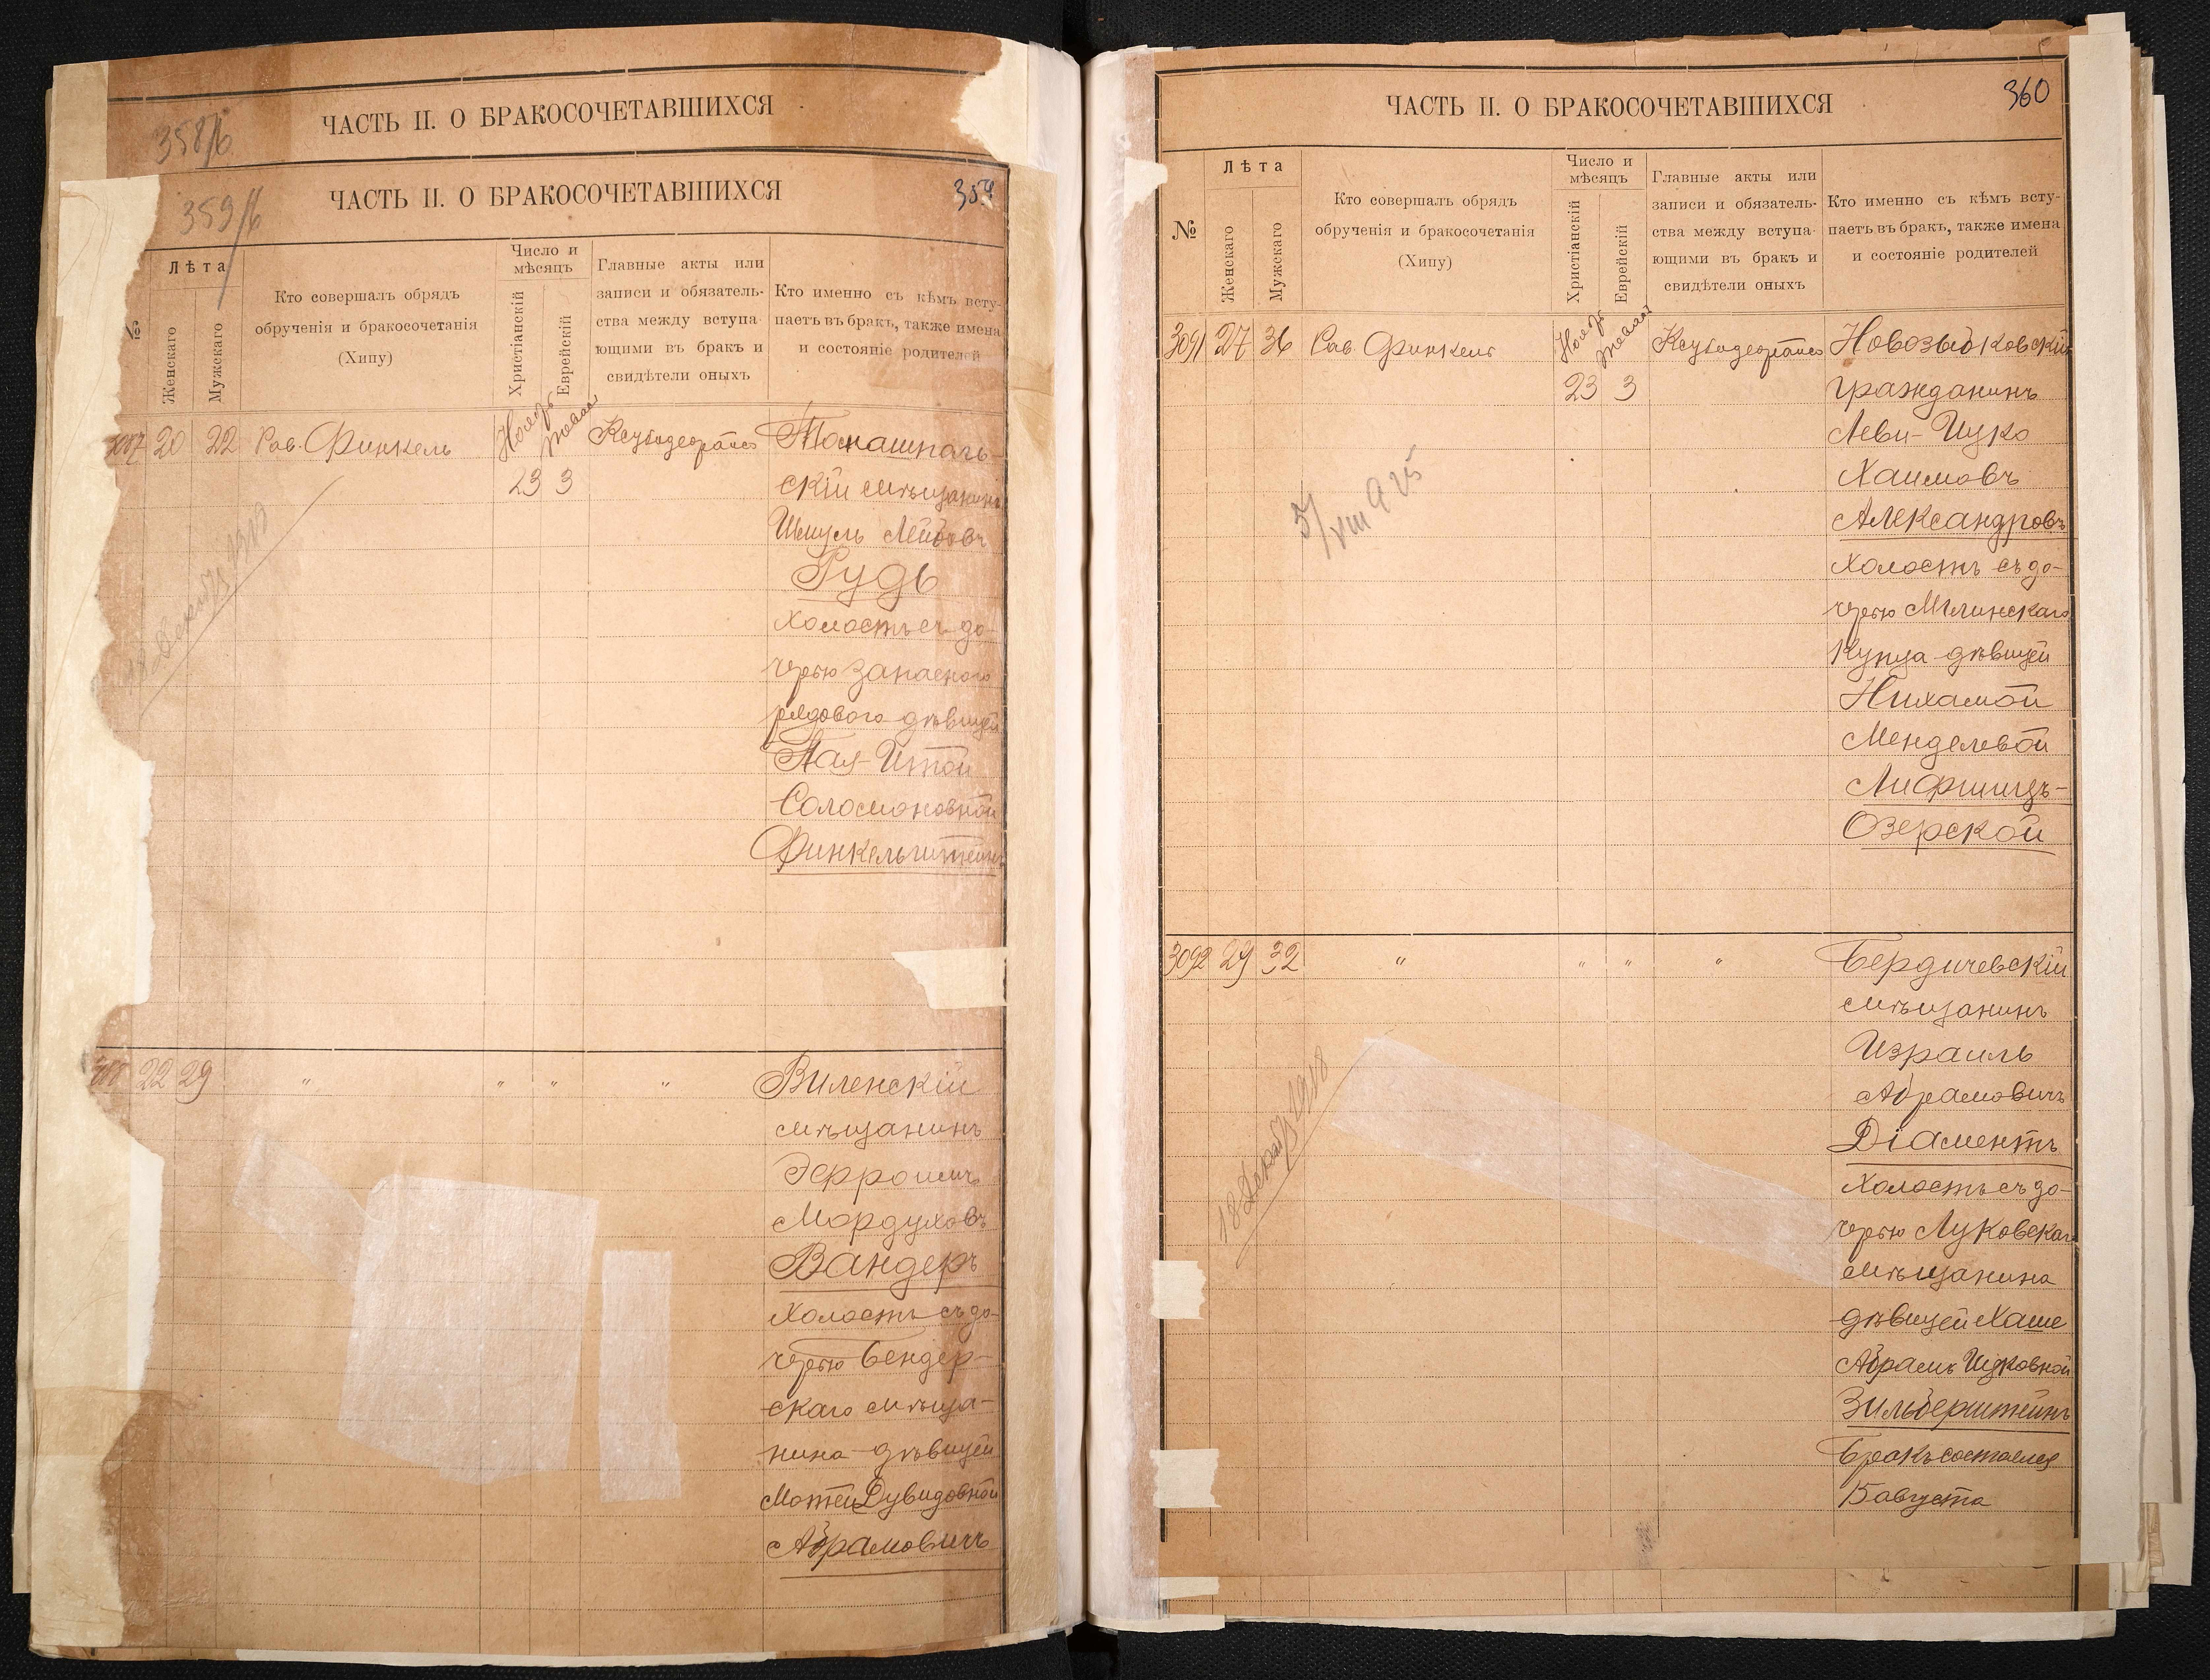 ЧАСТЬ II. О БРАКОСОЧЕТАВШИХСЯ
358/б
ЧАСТЬ II. О БРАКОСОЧЕТАВШИХСЯ
359
359/б
№
Лѣта
Женскаго
Мужскаго
Кто совершалъ обрядъ
обрученія и бракосочетанія
(Хипу)
Число и
мѣсяцъ
Христіанскій
Еврейскій
Главные акты или
записи и обязатель-
ства между вступа-
ющими въ бракъ и
свидѣтели оныхъ
Кто именно съ кѣмъ всту-
паетъ въ бракъ, также имена
и состояніе родителей
20 22 Рав. Финкель
23 3
Томашполь-
скій мѣщанинъ
Шмуль Лейбовъ
Рудь
холостъ съ до-
черью запаснаго
рядового дѣвицей
Соломоновной
Финкельштейнъ
22 29 " " " "
Виленскій
мѣщанинъ
Мордуховъ
Вандеръ
Холостъ съ до-
черью Бендер-
скаго мѣща-
нина дѣвицей
Дувидовной
Абрамовичъ
ЧАСТЬ II. О БРАКОСОЧЕТАВШИХСЯ
360
№
Лѣта
Женскаго
Мужскаго
Кто совершалъ обрядъ
обрученія и бракосочетанія
(Хипу)
Число и
мѣсяцъ
Христіанскій
Еврейскій
Главные акты или
записи и обязатель-
ства между вступа-
ющими въ бракъ и
свидѣтели оныхъ
Кто именно съ кѣмъ всту-
паетъ въ бракъ, также имена
и состояніе родителей
3091 27 36 Рав. Финкель
23 3
Новозыбковскій
гражданинъ
Леви-Ицко
Хаимовъ
Александровъ
холостъ съ до-
черью Мглинскаго
купца дѣвицей
Нихамой
Менделевой
Лифшицъ-
Озерской
5/VIII 925
3092 29 32 " " " "
Бердичевскій
мѣщанинъ
Израиль
Абрамовичъ
Діаментъ
холостъ съ до-
черью Луковскаго
мѣщанина
дѣвицей Хаше
Абрамъ Ицковной
Зильберштейнъ
Бракъ состоялся
15 августа
18 Декабр 1918